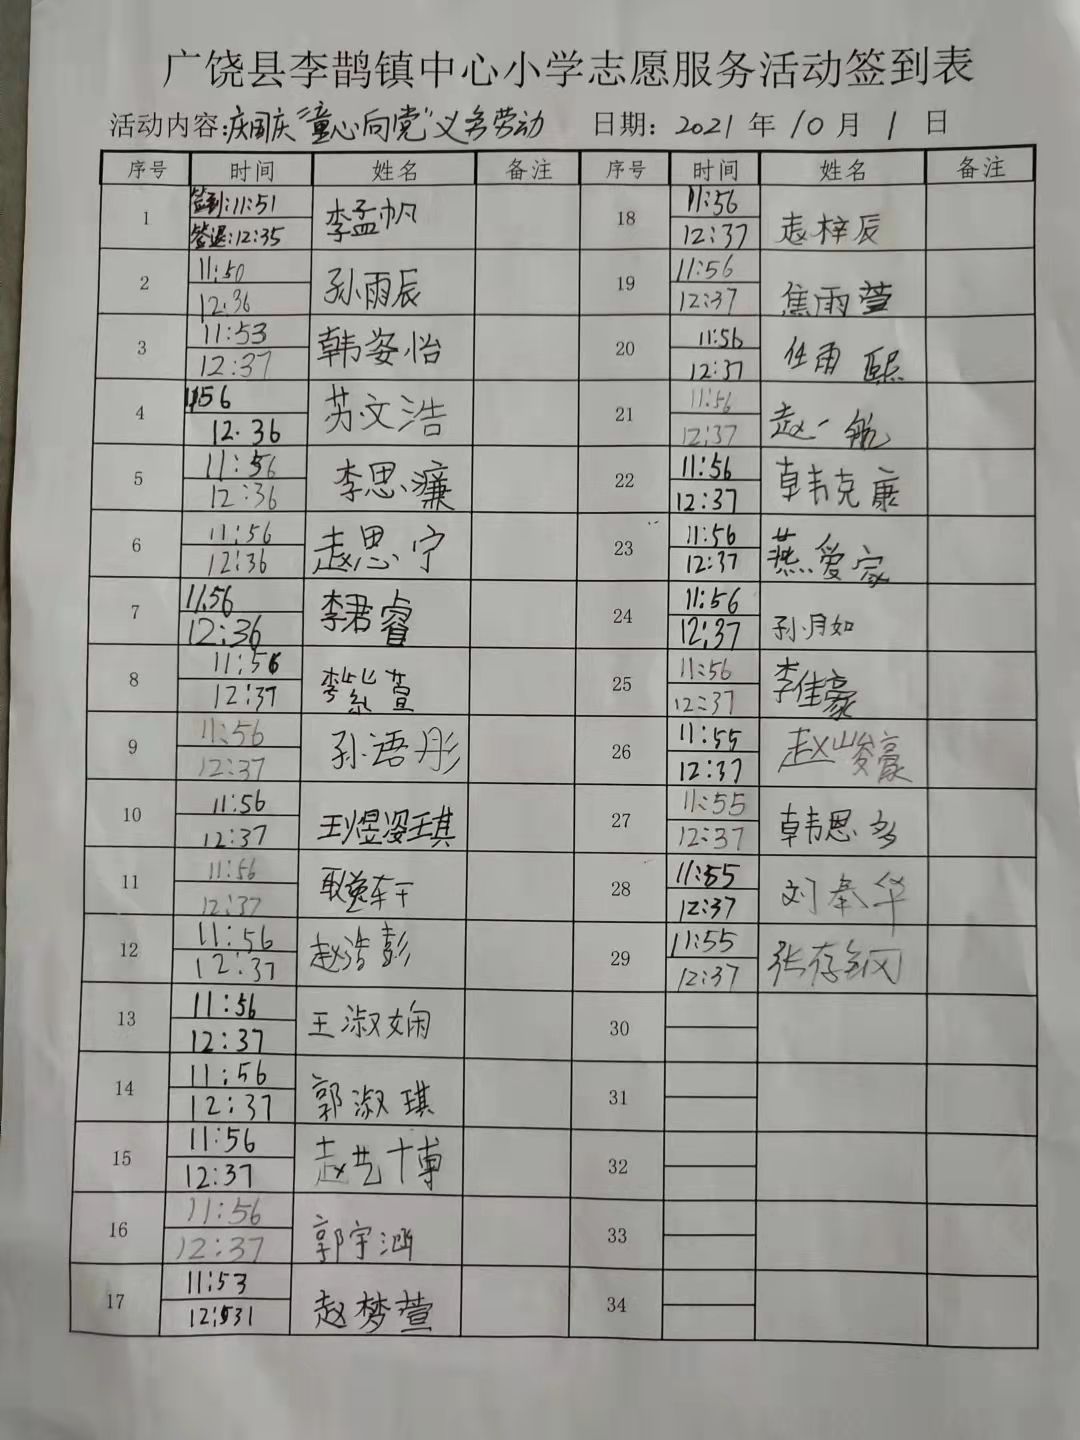 广饶县李鹊镇中心小学志愿服务活动签到表
活动内容:庆国庆"童心向党"义务劳动 日期: 2021 年 10 月 1 日
序号 时间 姓名 备注 序号 时间 姓名 备注
1 签到:11:51 签退:12:35 李孟帆 18 11:56 12:37 赵梓辰
2 11:50 12:36 孙雨辰 19 11:56 12:37 焦雨萱
3 11:53 12:37 韩姿怡 20 11:56 12:37 任雨熙
4 11:56 12:36 苏文浩 21 11:56 12:37 赵一航
5 11:56 12:36 李思濂 22 11:56 12:37 韩克康
6 11:56 12:36 赵思宁 23 11:56 12:37 燕爱家
7 11:56 12:36 李君睿 24 11:56 12:37 孙月如
8 11:56 12:37 李紫萱 25 11:56 12:37 李佳豪
9 11:56 12:37 孙语彤 26 11:55 12:37 赵峻豪
10 11:56 12:37 王煜姿琪 27 11:55 12:37 韩思多
11 11:56 12:37 耿 28 11:55 12:37 刘奉华
12 11:56 12:37 赵浩彭 29 11:55 12:37 张存
13 11:56 12:37 王淑娴 30
14 11:56 12:37 郭淑琪 31
15 11:56 12:37 赵艺博 32
16 11:56 12:37 郭宇涵 33
17 11:53 赵梦萱 34